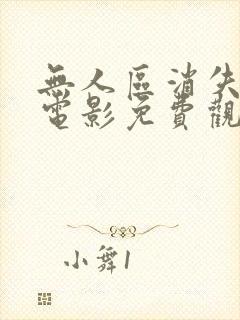 無人區消失
電影免費觀
小舞1